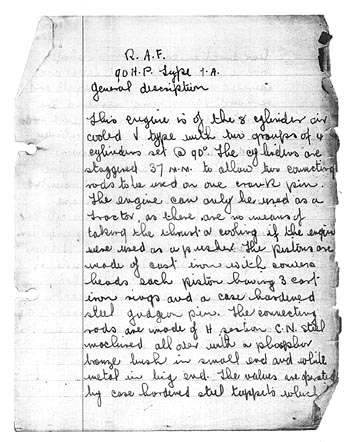 R.A.F.
90 H.P. Type 1.A.
General description
This engine is of the 8 cylinder air
cooled V type with two groups of 4
cylinders set @ 90°. The cylinders are
staggered 37 m.m. to allow two conecting
rods to be used on one crank pin.
The engine can only be used as a
tractor, as there are no means of
taking the thrust or cooling if the engine
were used as a pusher. The pistons are
made of cast iron with convex
heads each piston having 3 cast
iron rings and a case hardened
steel gudgeon pin. The connecting
rods are made of H section C.N. steel
machined all over with a phosphor
bronze bush in small end and white
metal in big end. The valves are operated
by case hardened steel tappets which